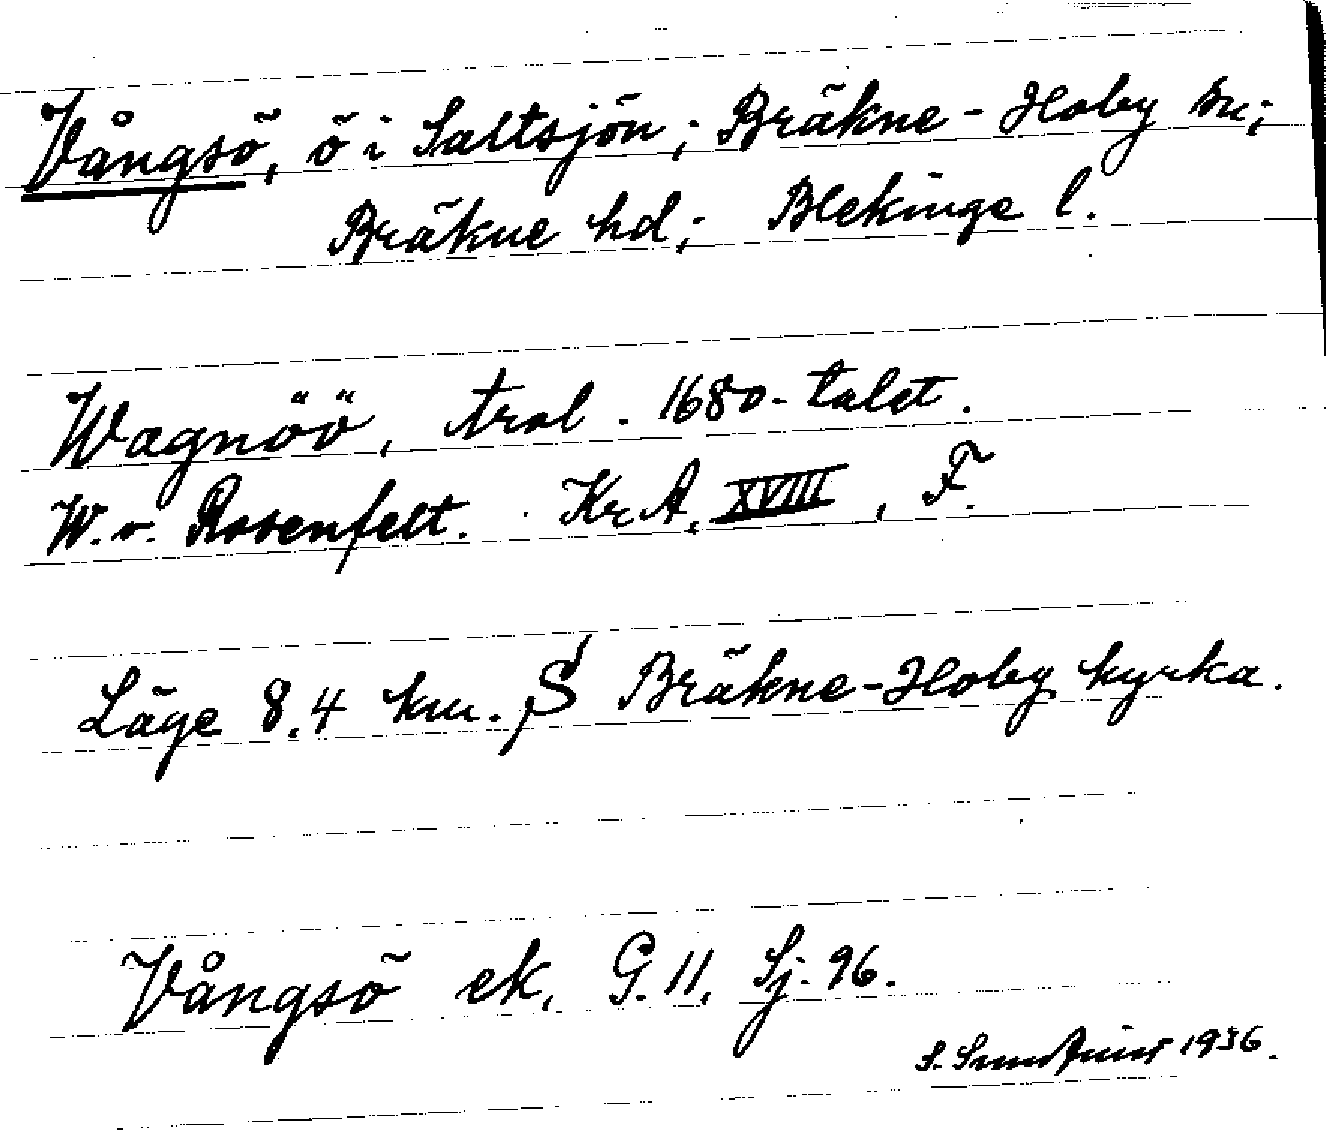 Vångsö, ö i Saltsjön; Bräkne-Hoby sn;
Bräkne hd; Blekinge l.
Wagnöö, trol. 1680-talet.
W. v. Rosenfelt. Kr.A. XVIII, F.
Läge 8.4 km. S Bräkne-Hoby kyrka.
Vångsö ek. G. 11. Sj. 96.
S. 1936.